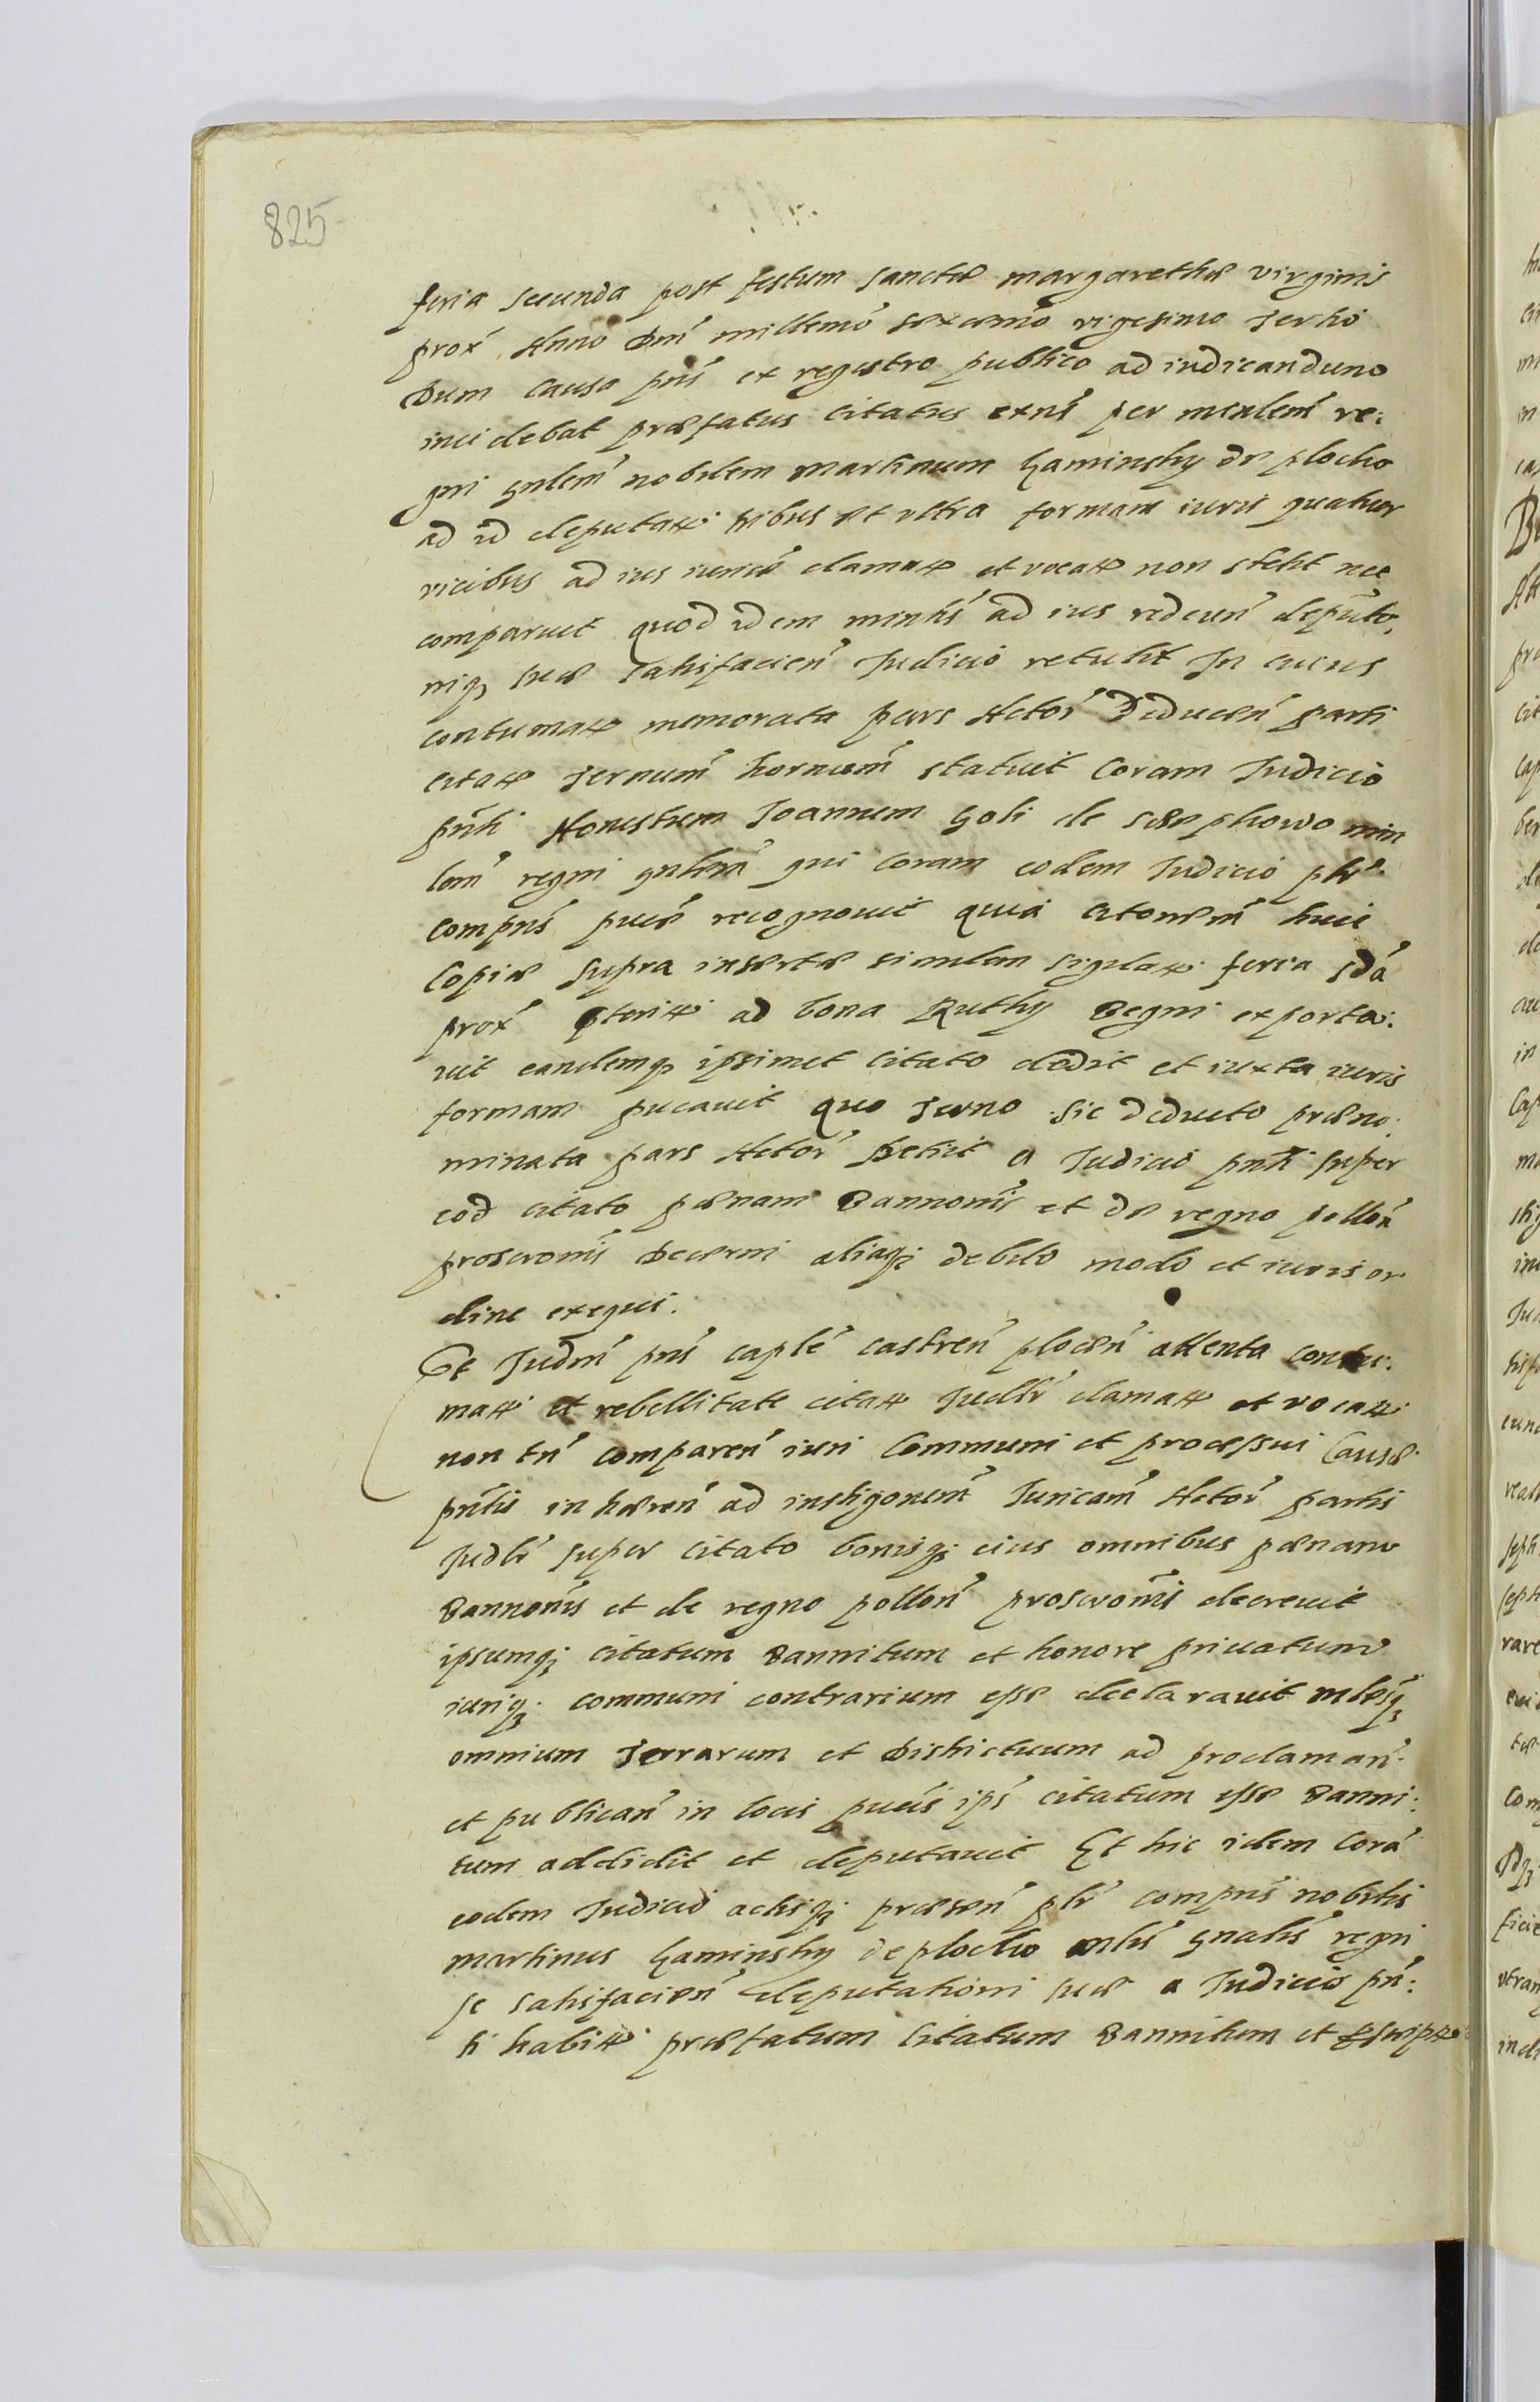 825
feria secunda post festum sanctæ margarethæ virginis
prox Anno Dni millemo sexcemo vigesimo Tertio
Dum Causa pns ex registro publico ad iudicandum
incidebat præfatus citatus extns per minlem re:
gni gnlem nobilem Martinum Kaminsky de plocko
ad id deputatt tribus et ultra formam iuris quatuor
vicibus ad ius iurice clamatt et vocatt non stetit nec
comparuit quod idem minlis ad ius redeun deputo,
niq suæ satisfacien Judicio retulit In cuius
contumatt memorata pars Actor Deducen parti
citatt Ternum hornum statuit Coram Judicio
pnti Honestum Joannem Goli de min
lem regni gnlem qui coram eodem Judicio plr
compns puce recognovit quia citonem huic
Copiæ supra insertæ similem sigilatt feria sda
prox pteritt ad bona Ruthy Regni exporta:
uit eandemq ipsimet Citato dedit et iuxta iuris
formam pucauit quo Terno sic deducto præno:
minata pars Actor petiit a Judicio pnti super
eod citato pænam Bannonis et de regno pollon
proscronis Decerni aliaq debito modo et iuris or
dine exequi.
Et Judm pns caple castren plocen attenta contu:
matt et rebellitate citatt Judlr clamatt et vocatt
non tn comparen iuri Communi et processui Causæ
pntis inhæren ad instigonem Juricam Actor partis
Judlr super citato bonisq eius omnibus pænam
Bannonis et de regno pollon proscronis decrevit
ipsumq citatum Bannitum et honore priuatum
iuriq communi contrarium esse declarauit
omnium Terrarum et Districtuum ad proclaman
et publican in locis pucis ips citatum esse Banni:
tum addidit et deputauit Et hic idem Cora
eodem Judicio actisq præsen plr compns nobilis
martinus Kaminsky de plocko mlis gnalis regni
se satisfacien deputationi suæ a Judicio pn:
ti habitt præfatum Citatum Bannitum et